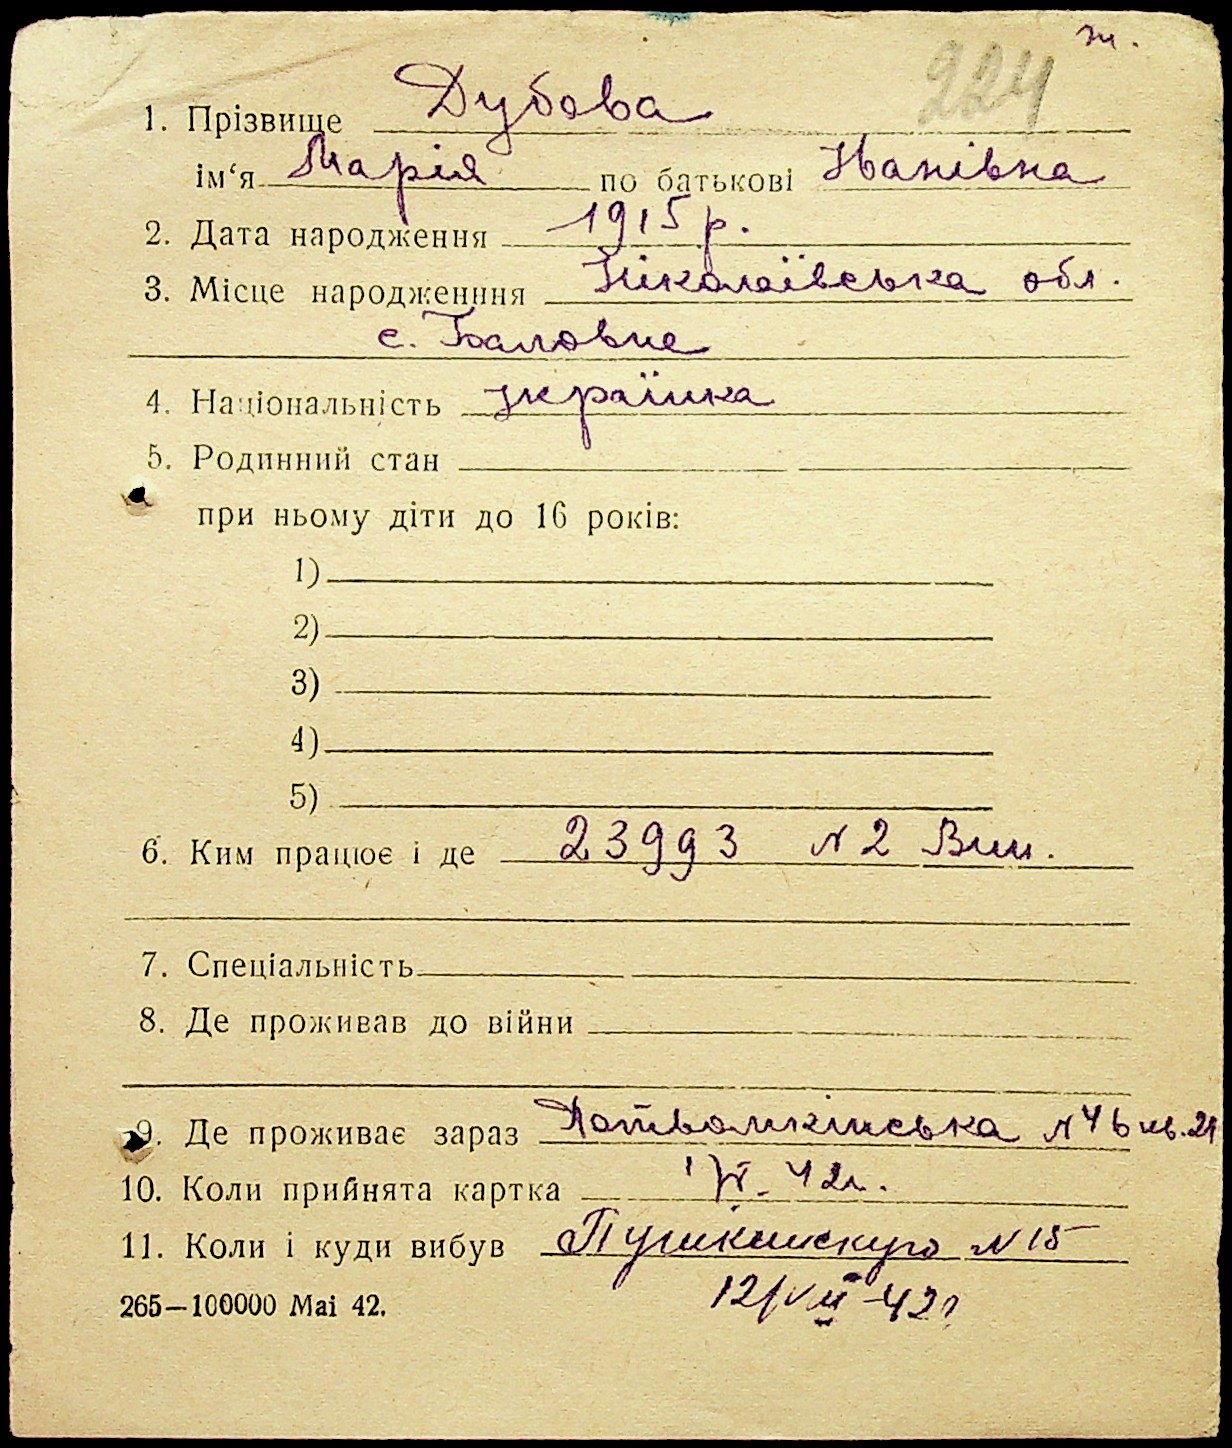 ж.
224
1. Прізвище Дубова
ім‘я Марія по батькові Іванівна
2. Дата народження 1915 р.
3. Місце народженння Ніколаївська обл.
с. Баловне
4. Національність українка
5. Родинний стан
при ньому діти до 16 років:
1)
2)
3)
4)
5)
6. Ким працює і де 23993 N 2 Виш.
7. Спеціальність
8. Де проживав до війни
9. Де проживає зараз Потьомкінська N 46 кв. 21
10. Коли прийнята картка 42г.
11. Коли і куди вибув Пушкинскую N 15
12/VIII-42г
265—100000 Mai 42.